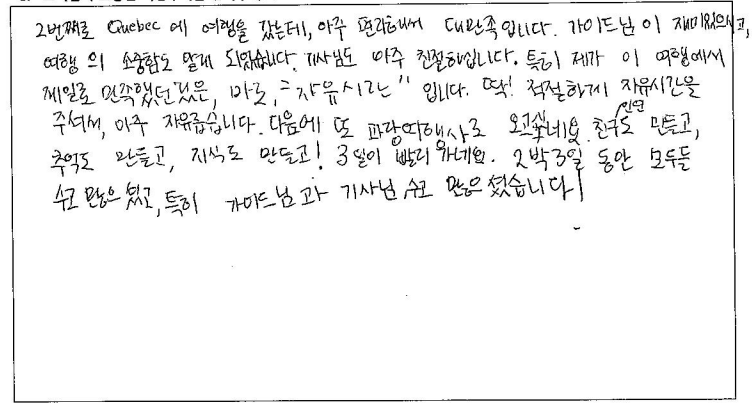 2번째로 Quebec 에 여행을 갔는데, 아주 편리해서 대만족입니다. 가이드님이 재미있으시고,
여행의 소중함도 알게 되었습니다. 기사님도 아주 친절하십니다. 특히 제가 이 여행에서
제일로 만족했던 것은, 바로, "자유시간" 입니다. 딱! 적절하게 자유시간을
주셔서, 아주 자유롭습니다. 다음에 또 파랑여행사로 오고싶네요. 친구도 인연 만들고,
추억도 만들고, 지식도 만들고! 3일이 빨리 가네요. 2박3일 동안 모두들
수고 많으셨고, 특히 가이드님과 기사님 수고 많으셨습니다!